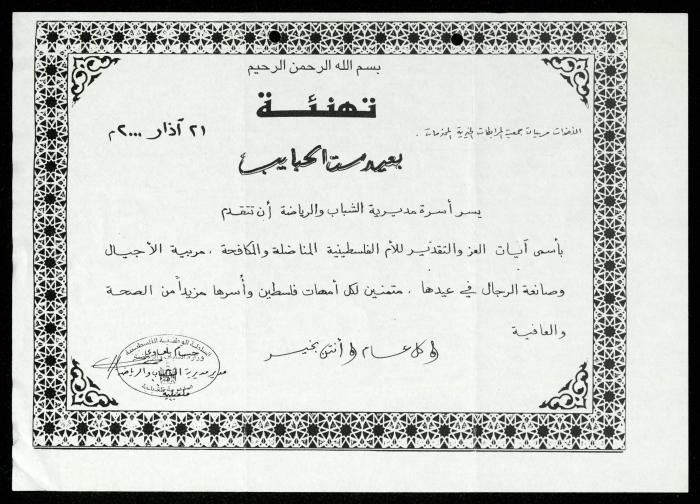 بسم الله الرحمن الرحيم
تهنئة
الأخوات مربيات جمعية المرابطات الخيرية المحترمات .
٢١ آذار ٢٠٠٠م
بعيد ست الحبايب
يسر أسرة مديرية الشباب والرياضة أن تتقدم
بأسمى آيات العز والتقدير للأم الفلسطينية المناضلة والمكافحة ، مربية الأجيال
وصانعة الرجال في عيدها ، متمنين لكل أمهات فلسطين وأسرها مزيداً من الصحة
والعافية
وكل عام وأنتن بخير
السلطة الوطنية الفلسطينية
مدير مديرية الشباب والرياضة
قلقيلية